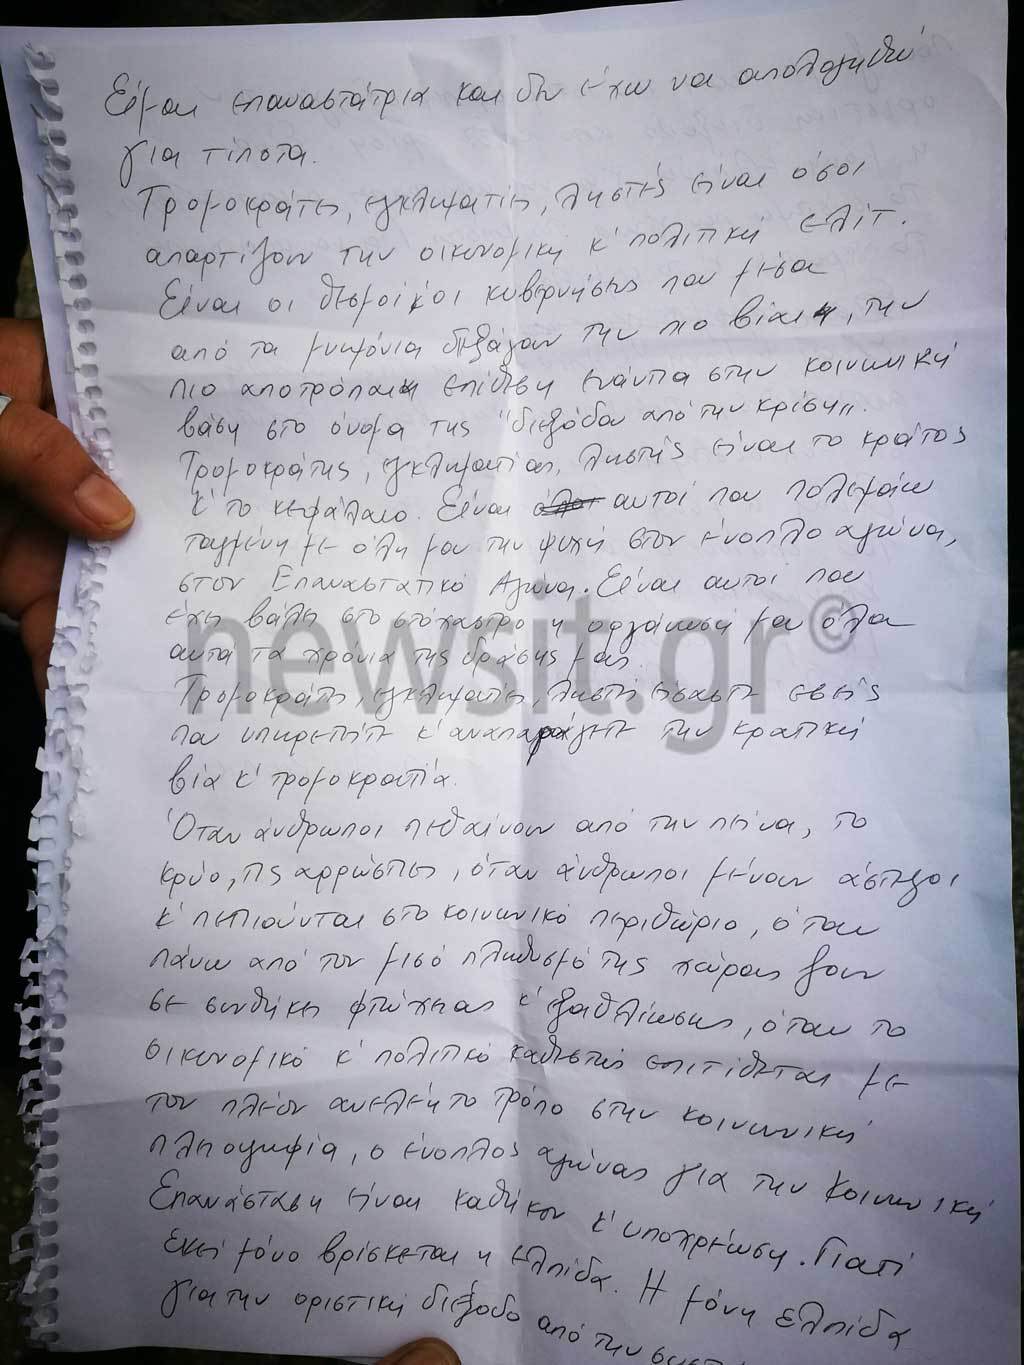 Είμαι επαναστάτρια και δεν έχω να απολογηθώ
για τίποτα.
Τρομοκράτες, εγκληματίες, ληστές είναι όσοι
απαρτίζουν την οικονομική κ' πολιτική ελίτ.
Είναι οι θεσμοί κ' οι κυβερνήσεις που μέσα
από τα μνημόνια διεξάγουν την πιο βίαιη, την
πιο αποτρόπαιη επίθεση ενάντια στην κοινωνική
βάση στο όνομα της "διεξόδου από την κρίση".
Τρομοκράτης, εγκληματίας, ληστής είναι το κράτος
κ' το κεφάλαιο. Είναι αυτοί που πολεμάω
ταγμένη με όλη μου την ψυχή στον ένοπλο αγώνα,
στον Επαναστατικό Αγώνα. Είναι αυτοί που
έχει βάλει στο στόχαστρο η οργάνωσή μου όλα
αυτά τα χρόνια της δράσης μας.
Τρομοκράτες, εγκληματίες, ληστές είσαστε εσείς
που υπηρετείτε κ' αναπαράγετε την κρατική
βία κ' τρομοκρατία.
Όταν άνθρωποι πεθαίνουν από την πείνα, το
κρύο, τις αρρώστιες, όταν άνθρωποι μένουν άστεγοι
κ' πετιούνται στο κοινωνικό περιθώριο, όταν
πάνω από τον μισό πληθυσμό της χώρας ζουν
σε συνθήκες φτώχειας κ' εξαθλίωσης, όταν το
οικονομικό κ' πολιτικό καθεστώς επιτίθεται με
τον πλέον ανελέητο τρόπο στην κοινωνική
πλειοψηφία, ο ένοπλος αγώνας για την Κοινωνική
Επανάσταση είναι καθήκον κ' υποχρέωση. Γιατί
εκεί μόνο βρίσκεται η ελπίδα. Η μόνη ελπίδα
για την οριστική διέξοδο από την
newsit.gr©